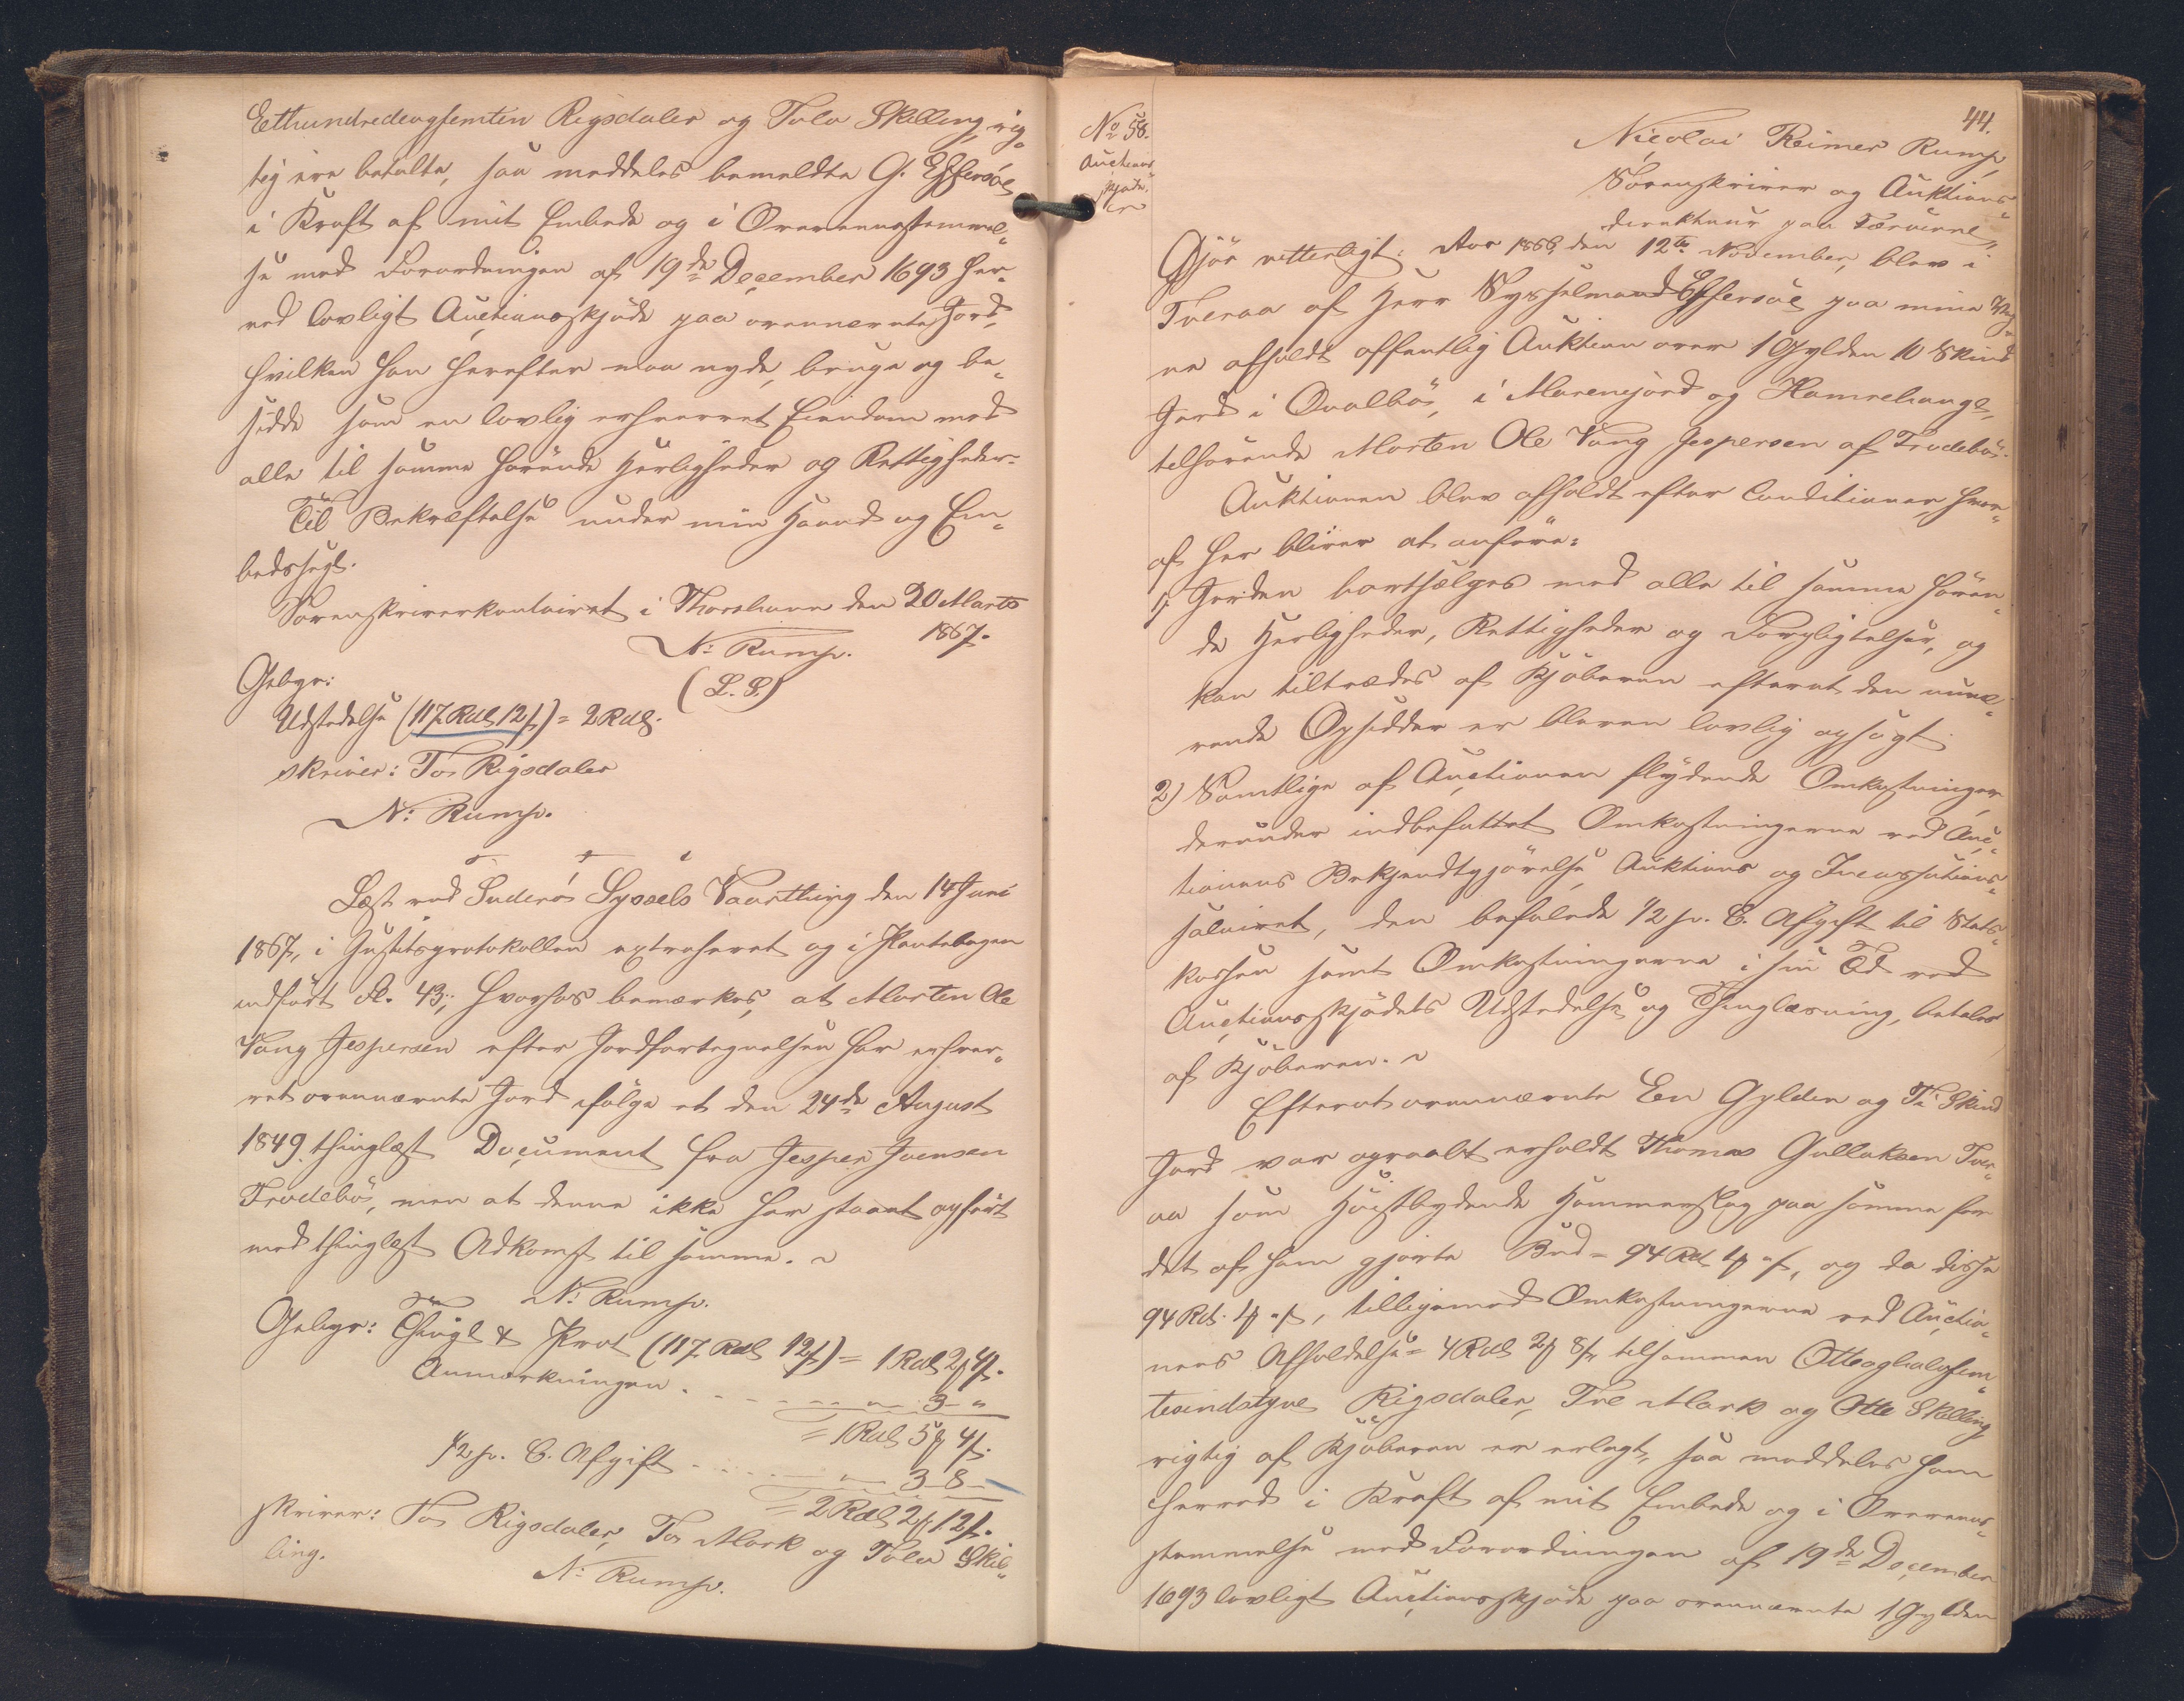 Etthundredeogsemten Rigsdaler og Tolv Skilling, rig-
tig ere betalte, saa meddeles bemeldte G. Effersöe
i Kraft af mit Embede og i Overeensstemmel-
se med Forordningen af 19de December 1693 her-
ved lovligt Auctionsskjöde paa ovennævnte Jord,
hvilken han herefter maa nyde, bruge og be-
sidde som en lovlig erhvervet Eiendom med
alle til samme hørende Herligheder og Rettigheder.
Til Bekræftelse under min Haand og Em-
bedssegl.
Sorenskriverkontoiret i Thorshavn den 20 Marts
1867.
N: Rump.
(L. S.)
Gebyr:
Udstedelse (117 Rdl 12 s) = 2 Rdl.
skriver: To Rigsdaler
N: Rump.
Læst ved Suderö Syssels Vaarthing den 14 Juni
1867, i Justitsprotokollen extraheret og i Pantebogen
indført Fl. 43; hvorhos bemærkes, at Morten Ole
Vang Jespersen efter Jordfortegnelsen har erhver-
vet ovennævnte Jord ifølge et den 24de August
1849 thinglæst Document fra Jesper Joensen
Frodebö, men at denne ikke har staaet opført
med thinglæst Adkomst til samme.
N: Rump.
Gebyr: Thingl & Prot (117 Rdl 12 s) = 1 Rdl 2 mk 4 s.
Anmærkningen . - - - - - " 3 - "
= 1 Rdl 5 mk 4 s.
1/2 p. C. Afgift - - - - - " 3 - 8 -
= 2 Rdl 2 mk 12 s.
skriver: To Rigsdaler, To Mark og Tolv Skil-
ling.
N: Rump.
44.
No 58.
Auctions
skjøde.
Nicolai Reimer Rump,
Sorenskriver og Auktions-
direkteur paa Færöerne,
Gjör vitterligt: Aar 1866, den 12te November, blev i
Tveraa af Herr Sysselmand Effersöe paa mine Veg-
ne afholdt offentlig Auktion over 1 Gylden 10 Skind
Jord i Qvalbö, i Marenejord og Hamrehauge,
tilhørende Morten Ole Vang Jespersen af Frodebö.
Auktionen blev afholdt efter Conditioner, hver-
af her bliver at anføre:
1) Jorden bortsælges med alle til samme høren-
de Herligheder, Rettigheder og Forpligtelser, og
kan tiltrædes af Kjöberen efterat den nuvæ-
rende Opsidder er bleven lovlig opsagt
2) Samtlige af Auctionen flydende Omkostninger
derunder indbefattet Omkostningerne ved Auc-
tionens Bekjendtgjörelse, Auktions og Incassations-
salairet, den befalede 1/2 p. C. Afgift til Stats-
kassen samt Omkostningerne i sin Tid ved
Auctionsskjödets Udstedelse og Thinglæsning, betales
af Kjöberen.
Efterat ovennævnte Een Gylden og Ti Skind
Jord var opraabt erholdt Thomas Gullaksen Tver-
aa som Høistbydende Hammerslag paa samme for
det af ham gjorte Bud = 94 Rd 1 mk " s, og da disse
94 Rd. 1 mk " s, tilligemed Omkostningerne ved Auctio-
nens Afholdelse = 4 Rdl 2 mk 8 s, tilsammen Otteoghalvfem-
tesindstyve Rigsdaler, Tre Mark og Otte Skilling
rigtig af Kjöberen er erlagt, saa meddeles ham
herved i Kraft af mit Embede og i Overeens-
stemmelse med Forordningen af 19de December
1693 lovligt Auctionsskjöde paa ovennævnte 1 Gylden